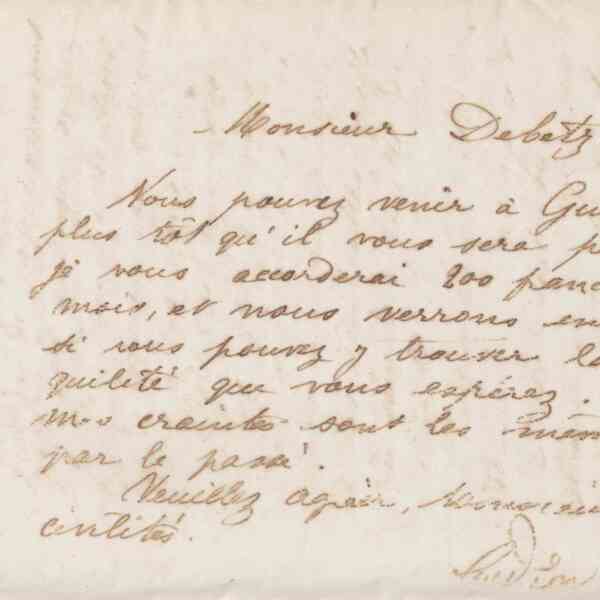 Monsieur Debetz
Nous pouvez venir à Gu
plus tôt qu'il vous sera p
je vous accorderai 200 franc
mois, et nous verrons en
si vous pouvez y trouver la
quilité que vous espérez.
mes craintes sont les mêm
par le passé.
Veuillez agréer, Monsieu
civilités.